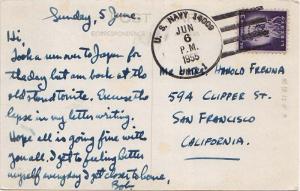 Sunday, 5 June.
Hi,
Took a run over to Japan for
the day but am back at the
old stand tonite. Excuse the
lapse in my letter writing.
Hope all is going fine with
you all. I get to feeling better
myself everyday I get closer to home,
Bob
U. S. NAVY 14009
JUN
6
P.M.
1955
HAROLD
594 CLIPPER ST.
SAN FRANCISCO
CALIFORNIA.